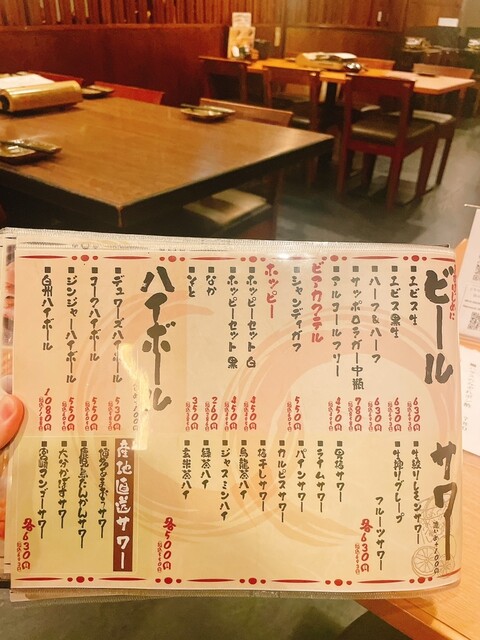 はじめに
ビール
■エビス生
630円
■エビス黒生
630円
■ハーフ&ハーフ
630円
■サッポロラガー中瓶
780円
■アルコールフリー
450円
ビアカクテル
■シャンディガフ
550円
ホッピー
■ホッピーセット 白
450円
■ホッピーセット 黒
450円
■なか
260円
■そと
350円
ハイボール
■デュワーズハイボール
530円
■コークハイボール
550円
■ジンジャーハイボール
550円
■白州ハイボール
1080円
サワー
濃いめ+100円
■生絞りレモンサワー
■生搾りグレープ
フルーツサワー
各630円
■男梅サワー
■ライムサワー
■パインサワー
■カルピスサワー
■梅干しサワー
■烏龍茶ハイ
■ジャスミンハイ
■緑茶ハイ
■玄米茶ハイ
各500円
産地直送サワー
■博多あまおうサワー
■鹿児島たんかんサワー
■大分かぼすサワー
■宮崎マンゴーサワー
各630円